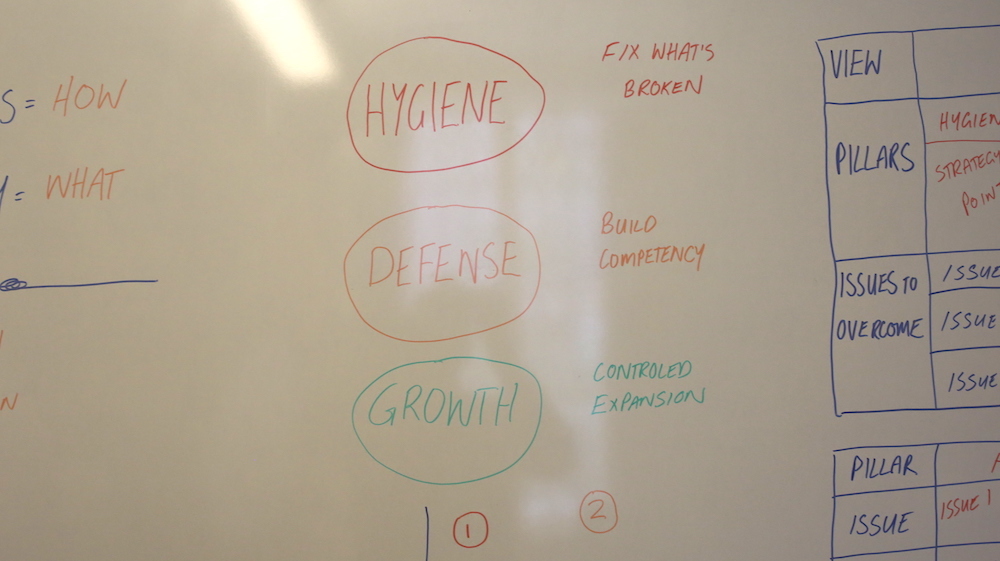 S = HOW
= WHAT
HYGIENE
FIX WHAT'S
BROKEN
DEFENSE
BUILD
COMPETENCY
GROWTH
CONTROLED
EXPANSION
1
2
VIEW
PILLARS
HYGIEN
STRATEGY
POINT
ISSUES TO
OVERCOME
ISSUE
ISSUE
ISSUE
PILLAR
ISSUE
ISSUE 1